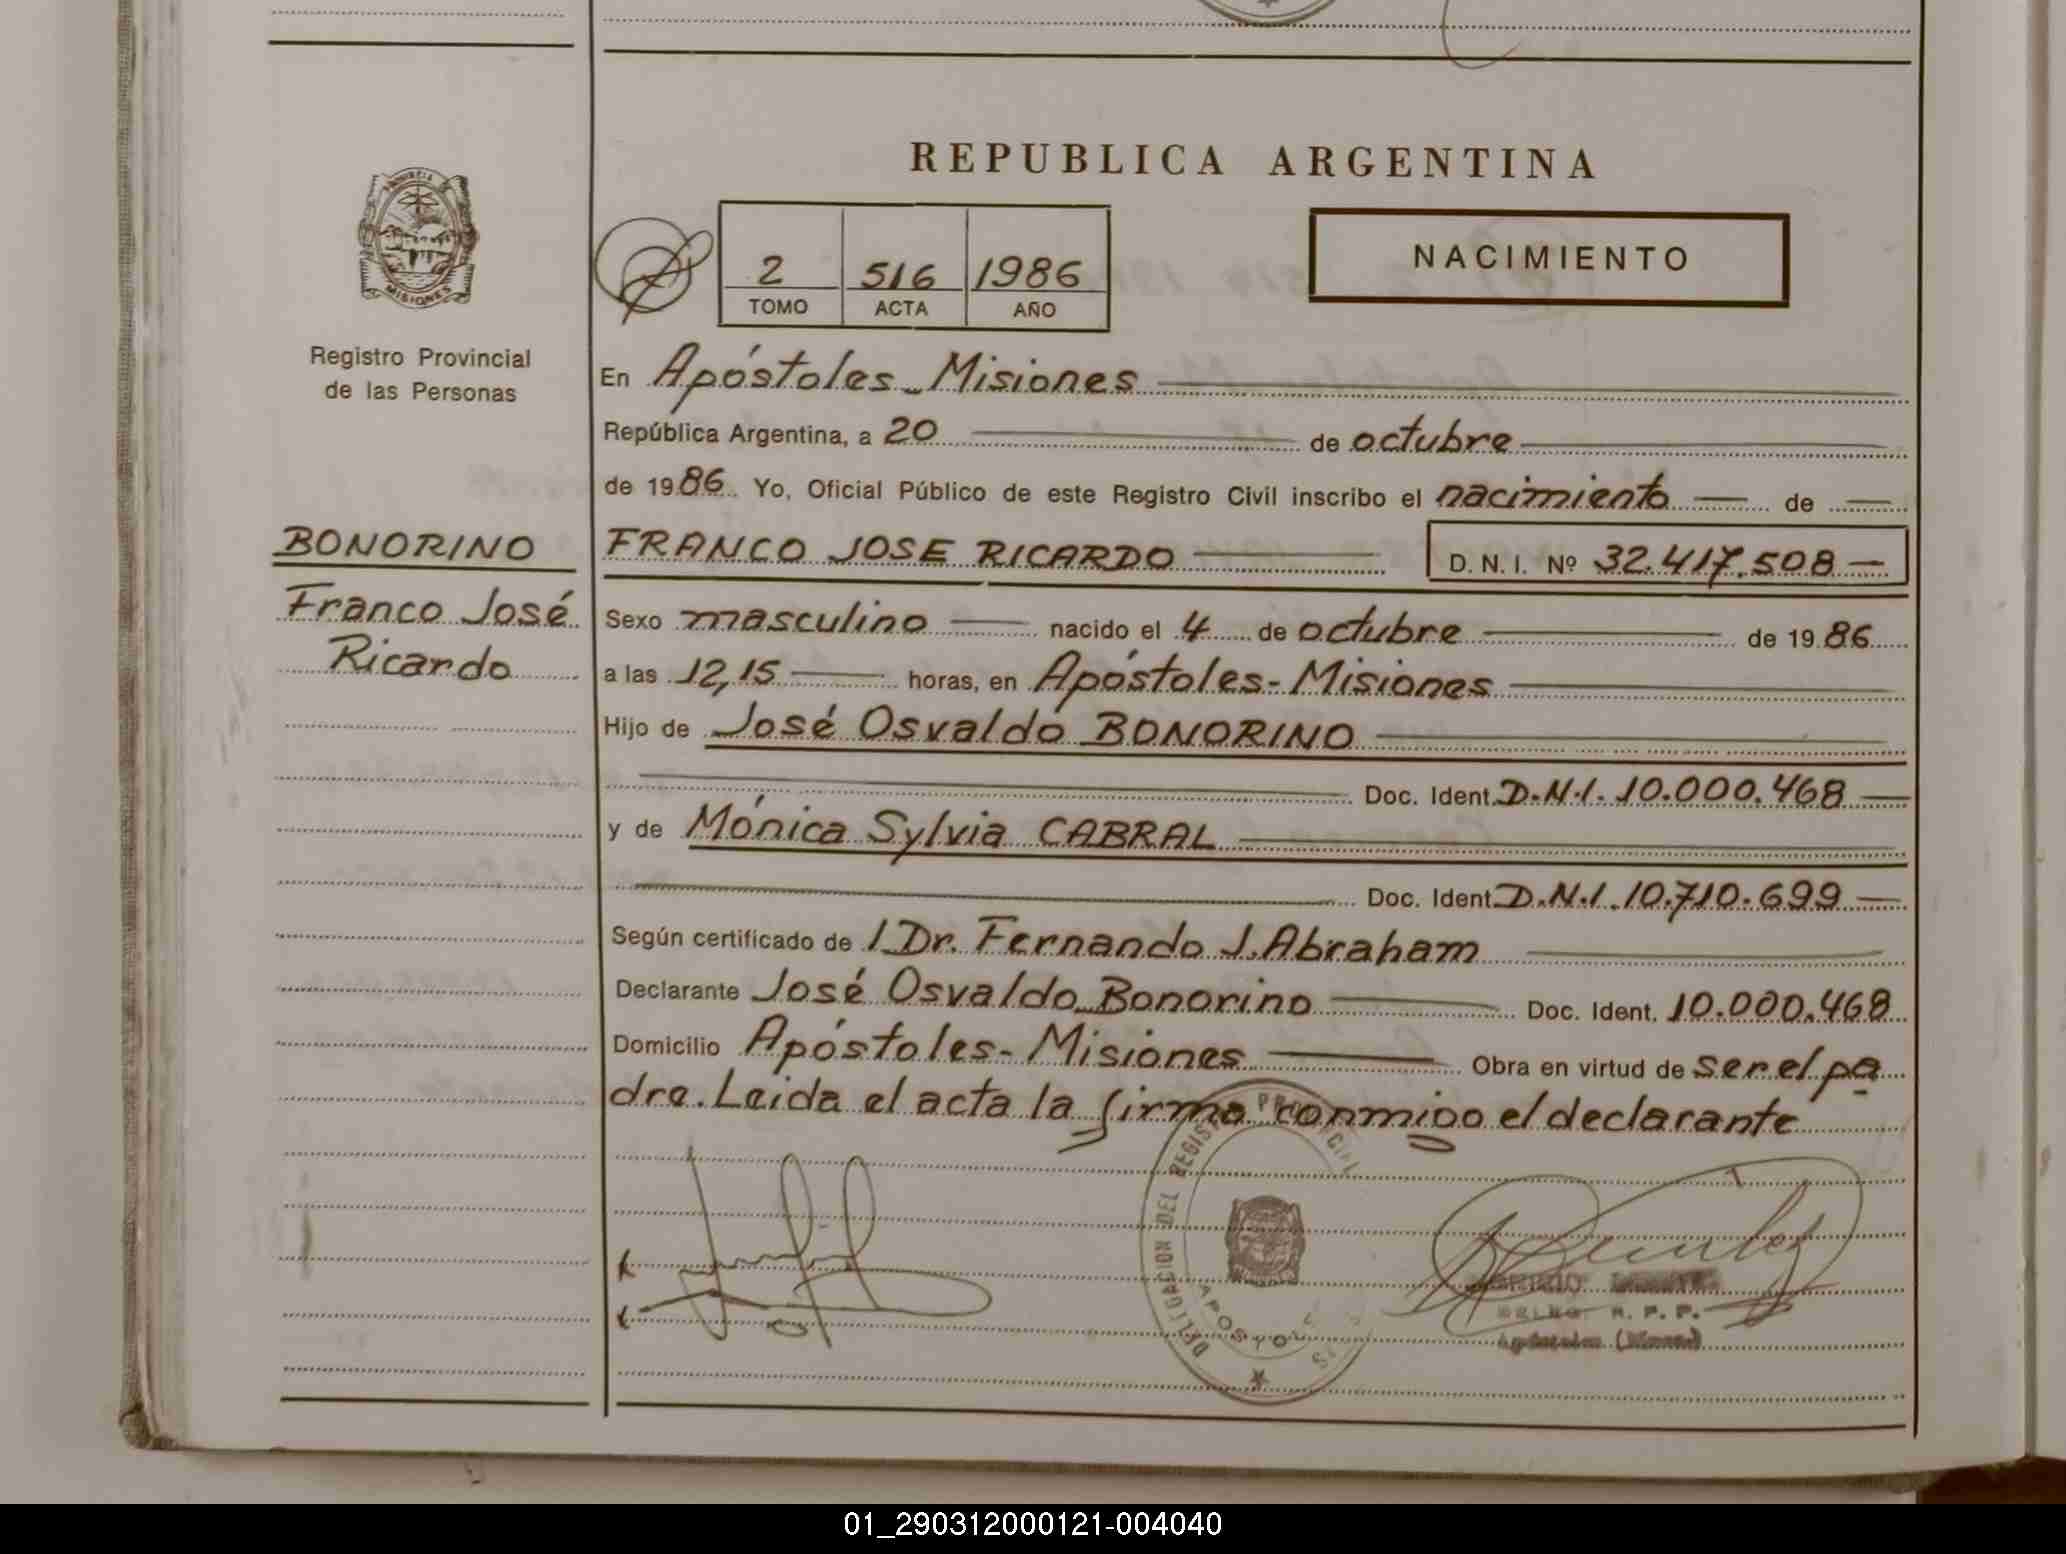 REPUBLICA ARGENTINA
PROVINCIA
MISIONES
Registro Provincial
de las Personas
2 516 1986
TOMO ACTA AÑO
NACIMIENTO
En Apóstoles - Misiones
República Argentina, a 20 de octubre
de 1986 Yo, Oficial Público de este Registro Civil inscribo el nacimiento de
BONORINO
Franco José
Ricardo
FRANCO JOSE RICARDO D. N. I. Nº 32.417.508
Sexo masculino nacido el 4 de octubre de 1986
a las 12,15 horas, en Apóstoles - Misiones
Hijo de José Osvaldo BONORINO
Doc. Ident. D.N.I. 10.000.468
y de Mónica Sylvia CABRAL
Doc. Ident. D.N.I. 10.710.699
Según certificado de / Dr. Fernando J. Abraham
Declarante José Osvaldo Bonorino Doc. Ident. 10.000.468
Domicilio Apóstoles - Misiones Obra en virtud de ser el pa
dre. Leida el acta la firma conmigo el declarante
DELEGACION DEL REGISTRO PROVINCIAL
APOSTOLES
R. P. P.
01_290312000121-004040